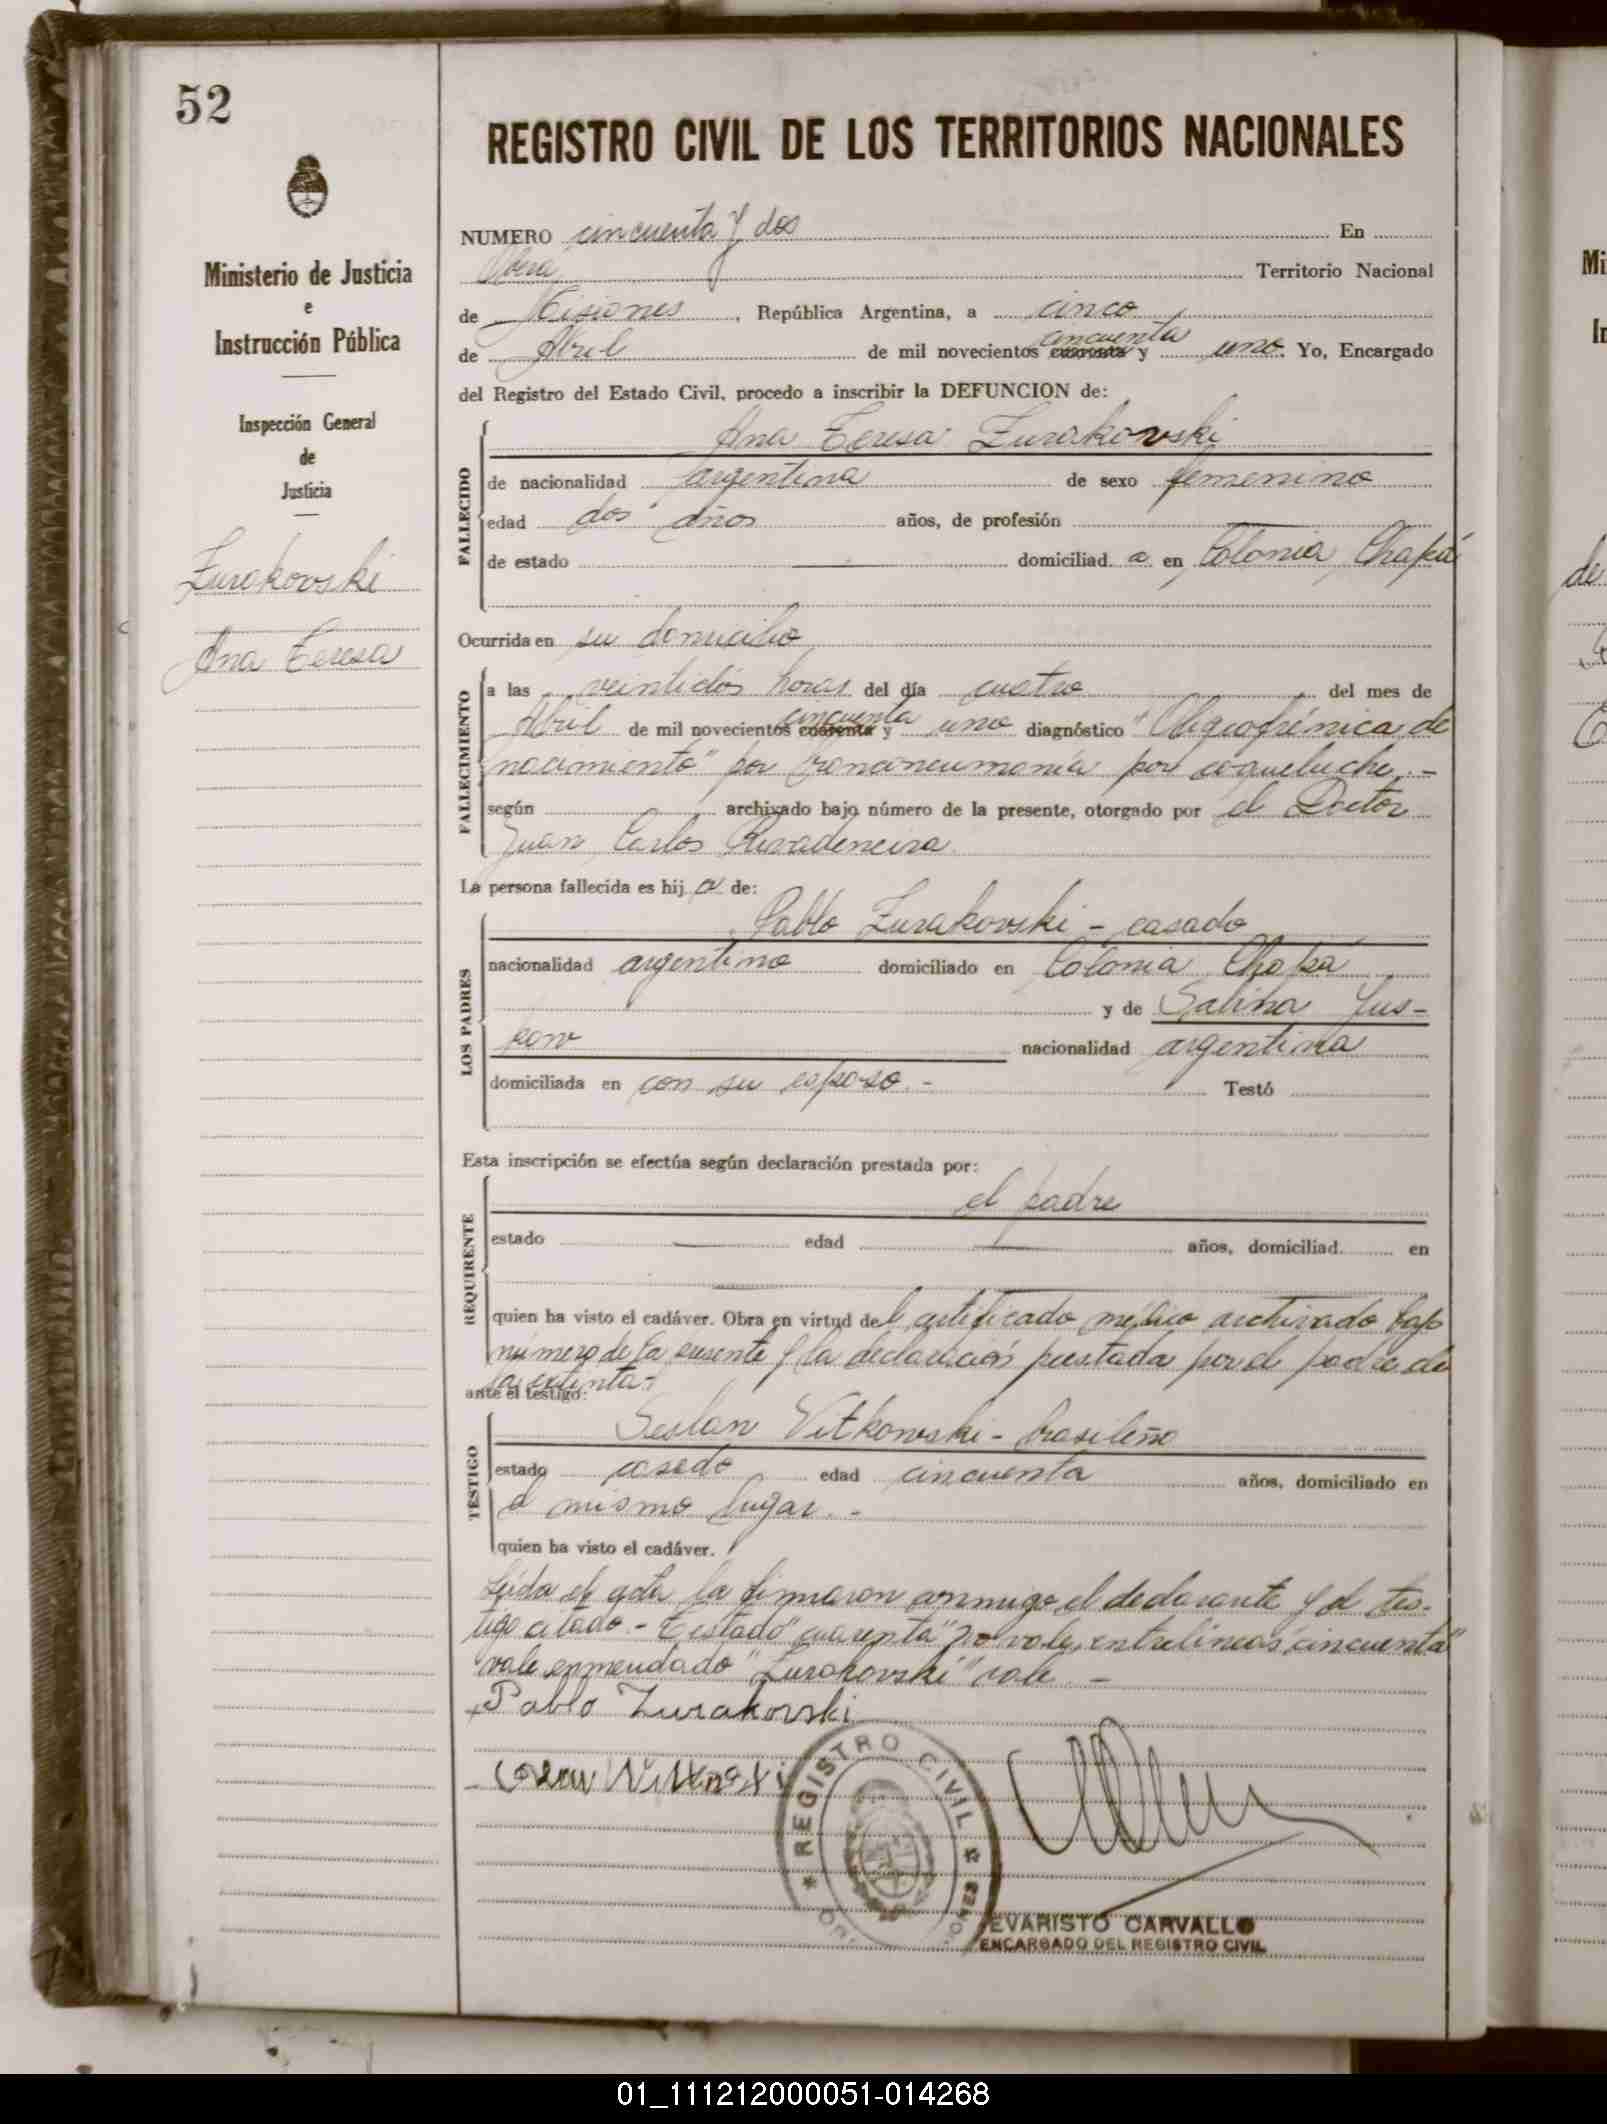 52
Ministerio de Justicia
e
Instrucción Pública
Inspección General
de
Justicia
Zurakovski
Ana Teresa
REGISTRO CIVIL DE LOS TERRITORIOS NACIONALES
NUMERO cincuenta y dos En
Oberá Territorio Nacional
de Misiones, República Argentina, a cinco
de Abril de mil novecientos cuarenta cincuenta y uno. Yo, Encargado
del Registro del Estado Civil, procedo a inscribir la DEFUNCION de:
FALLECIDO
Ana Teresa Zurakovski
de nacionalidad argentina de sexo femenino
edad dos años años, de profesión
de estado domiciliad a en Colonia Chapá
Ocurrida en su domicilio
FALLECIMIENTO
a las veintidós horas del día cuatro del mes de
Abril de mil novecientos cuarenta cincuenta y uno diagnóstico "Oligofrénica de
nacimiento" por bronconeumonía por coqueluche.-
según archivado bajo número de la presente, otorgado por el Doctor
Juan Carlos Rivadeneira
La persona fallecida es hij a de:
LOS PADRES
Pablo Zurakovski - casado
nacionalidad argentino domiciliado en Colonia Chapá
y de Galina Jus-
kow nacionalidad argentina
domiciliada en con su esposo.- Testó
Esta inscripción se efectúa según declaración prestada por:
REQUIRENTE
el padre
estado edad años, domiciliad. en
quien ha visto el cadáver. Obra en virtud de l certificado médico archivado bajo
número de la presente y la declaración prestada por el padre de
la extinta.-
ante el testigo:
TESTIGO
Seslan Vitkowski - brasileño
estado casado edad cincuenta años, domiciliado en
el mismo lugar.-
quien ha visto el cadáver.
Leída el acta la firmaron conmigo el declarante y el tes-
tigo citado.- Testado "cuarenta" no vale, entrelíneas "cincuenta"
vale, enmendado "Zurakovski" vale.-
Pablo Zurakovski
REGISTRO CIVIL
EVARISTO CARVALLO
ENCARGADO DEL REGISTRO CIVIL
01_111212000051-014268